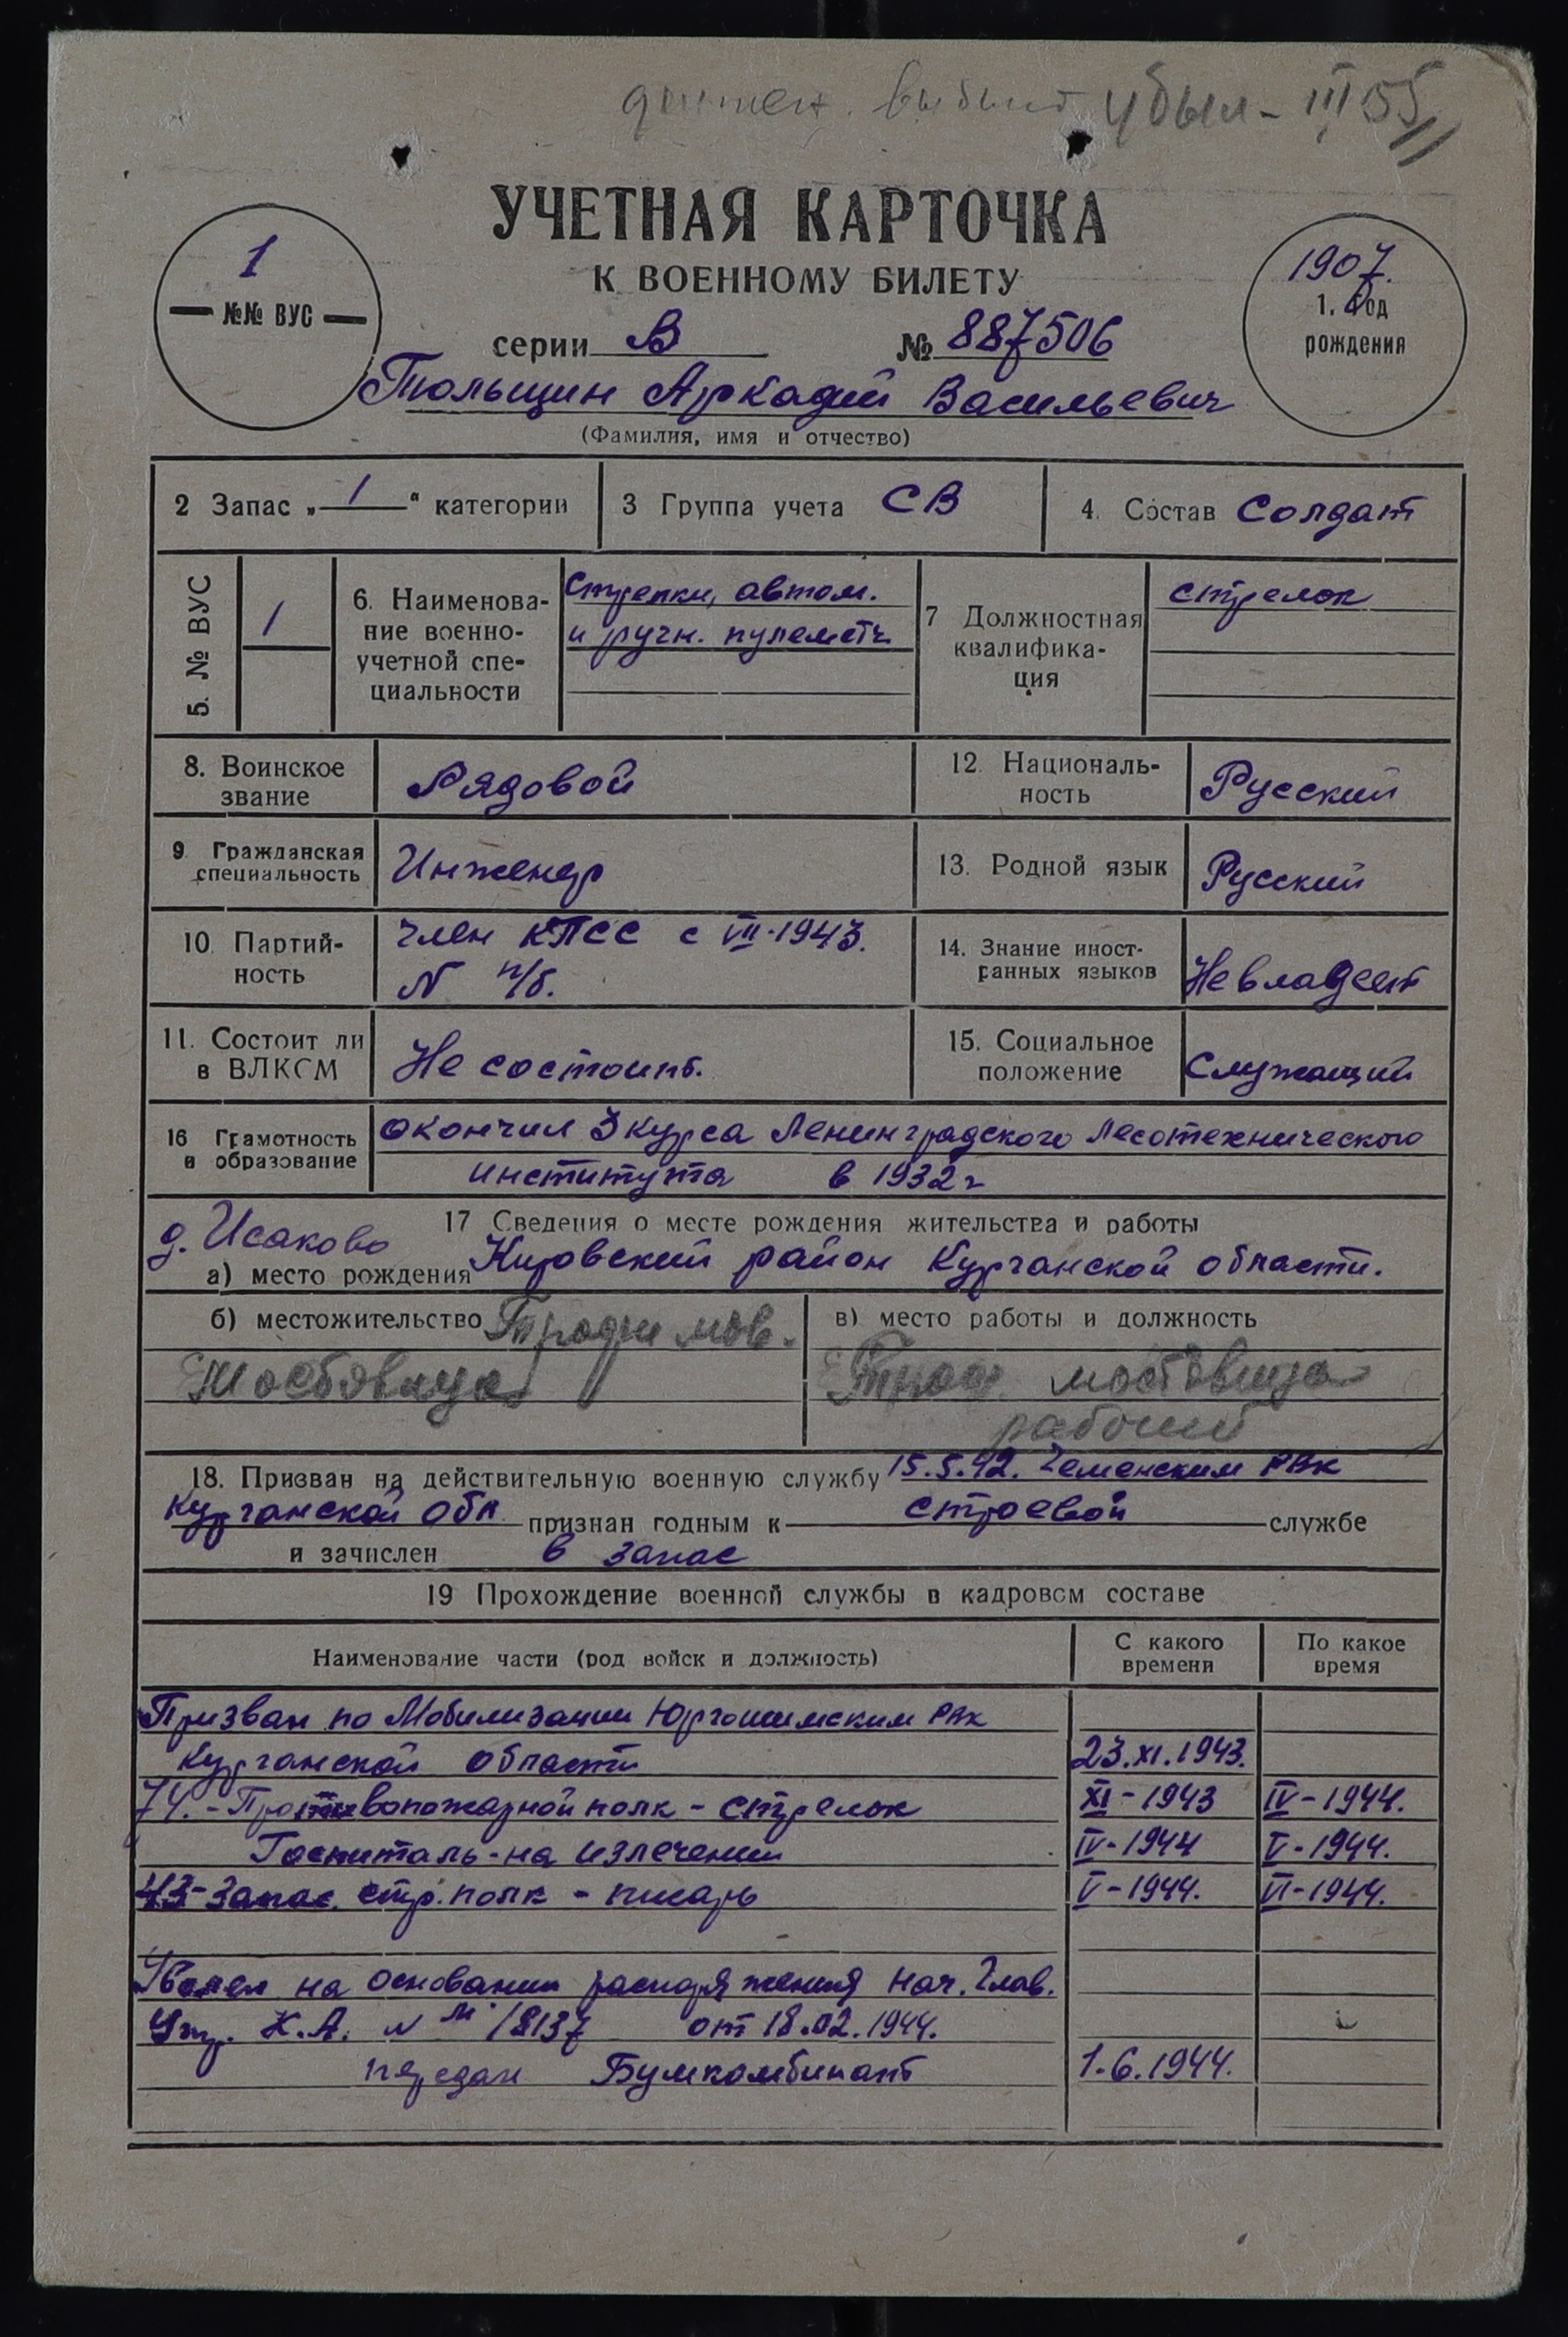 убыл - III 55
УЧЕТНАЯ КАРТОЧКА
К ВОЕННОМУ БИЛЕТУ
1
№№ ВУС
1907.
1. Год
рождения
серии В № 887506
Тюльщин Аркадий Васильевич
(Фамилия, имя и отчество)
2 Запас „ 1 “ категории
3 Группа учета СВ
4. Состав Солдат
5. № ВУС
1
6. Наименова-
ние военно-
учетной спе-
циальности
Стрелки, автом.
и ручн. пулеметч.
7 Должностная
квалифика-
ция
стрелок
8. Воинское
звание
Рядовой
12. Националь-
ность
Русский
9. Гражданская
специальность
Инженер
13. Родной язык
Русский
10. Партий-
ность
член КПСС с VII-1943.
N п/б.
14. Знание иност-
ранных языков
Не владеет
11. Состоит ли
в ВЛКСМ
Не состоит.
15. Социальное
положение
Служащий
16 Грамотность
и образование
окончил 3 курса Ленинградского Лесотехнического
института в 1932 г
17 Сведения о месте рождения жительства и работы
д. Исаково
а) место рождения Кировский район Курганской области.
б) местожительство
Мостовица
в) место работы и должность
мостовица
рабочий
18. Призван на действительную военную службу 15.5.42. РВК
Курганской обл признан годным к строевой службе
и зачислен в запас
19 Прохождение военной службы в кадровом составе
Наименование части (род войск и должность)
С какого
времени
По какое
время
Призван по Мобилизации Юргамышским РВК
Курганской области 23.XI.1943.
74. - Противопожарной полк - стрелок XI - 1943 IV - 1944.
Госпиталь - на излечении IV - 1944 V - 1944.
43 - запас. стр. полк - писарь V - 1944. VI - 1944.
Уволен на основании распоряжения Нач. Глав.
Упр. К.А. N М/8137 от 18.02.1944.
передан Бумкомбинат 1.6.1944.